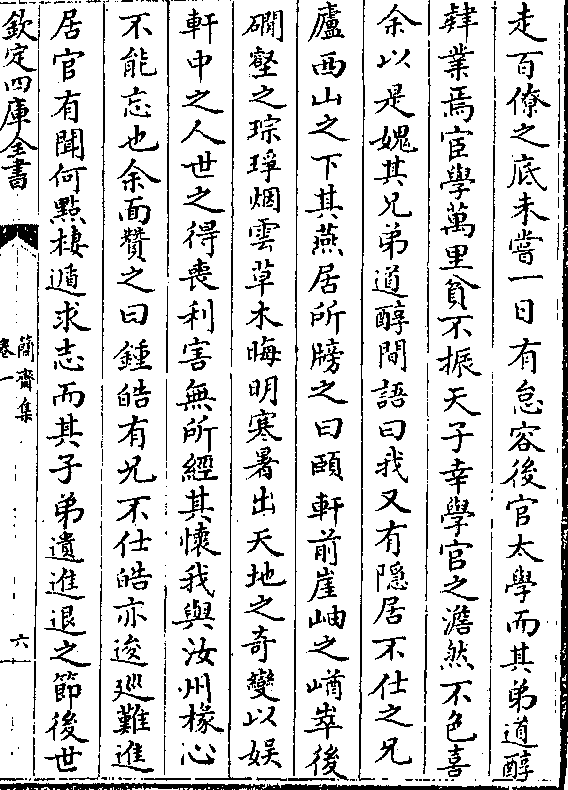 走百僚之底未嘗一日有怠容後官太學而其弟道醇
肄業焉宦學萬里貧不振天子幸學官之澹然不色喜
余以是媿其兄弟道醇間語曰我又有隠居不仕之兄
廬西山之下其燕居所牓之曰頤軒前崖岫之崷崒後
磵壑之琮琤烟雲草木晦明寒暑出天地之奇變以娱
軒中之人世之得喪利害無所經其懷我與汝州椽心
不能忘也余面賛之曰鍾皓有兄不仕皓亦逡廵難進
居官有聞何㸃棲遁求志而其子弟遺進退之節後世
欽定四庫全書
簡齋集
卷一
六